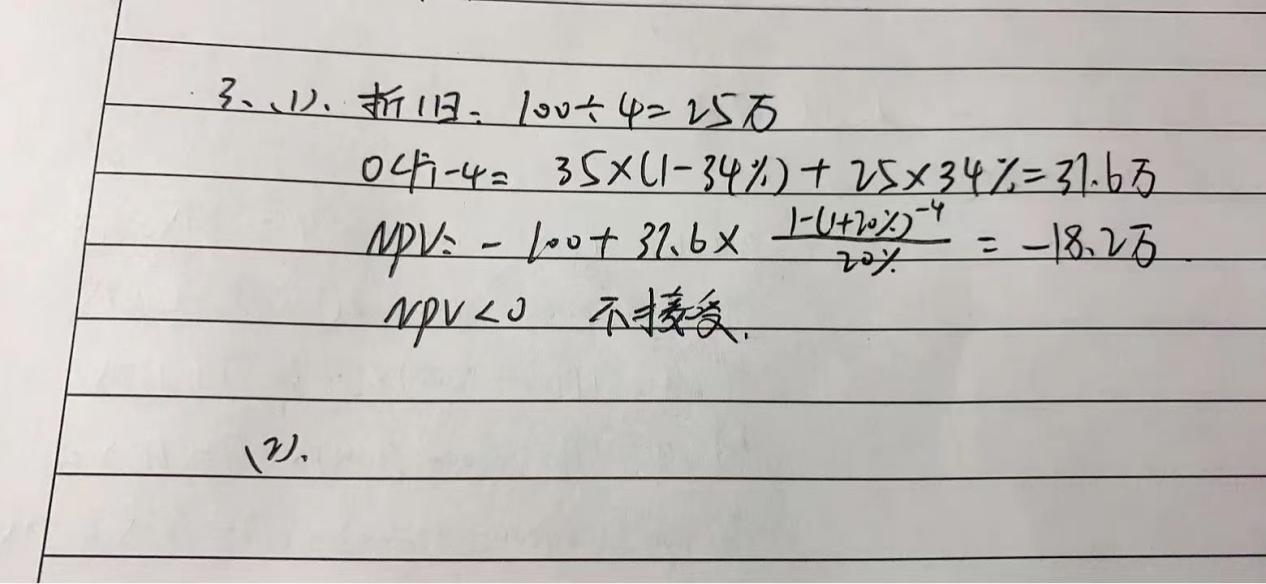 3、(1). 折旧: 100÷4=25万
OCF1-4= 35×(1-34%)+25×34%=31.6万
NPV= -100+31.6× 1-(1+20%)^-4 / 20% = -18.2万
NPV<0 不接受.
(2).